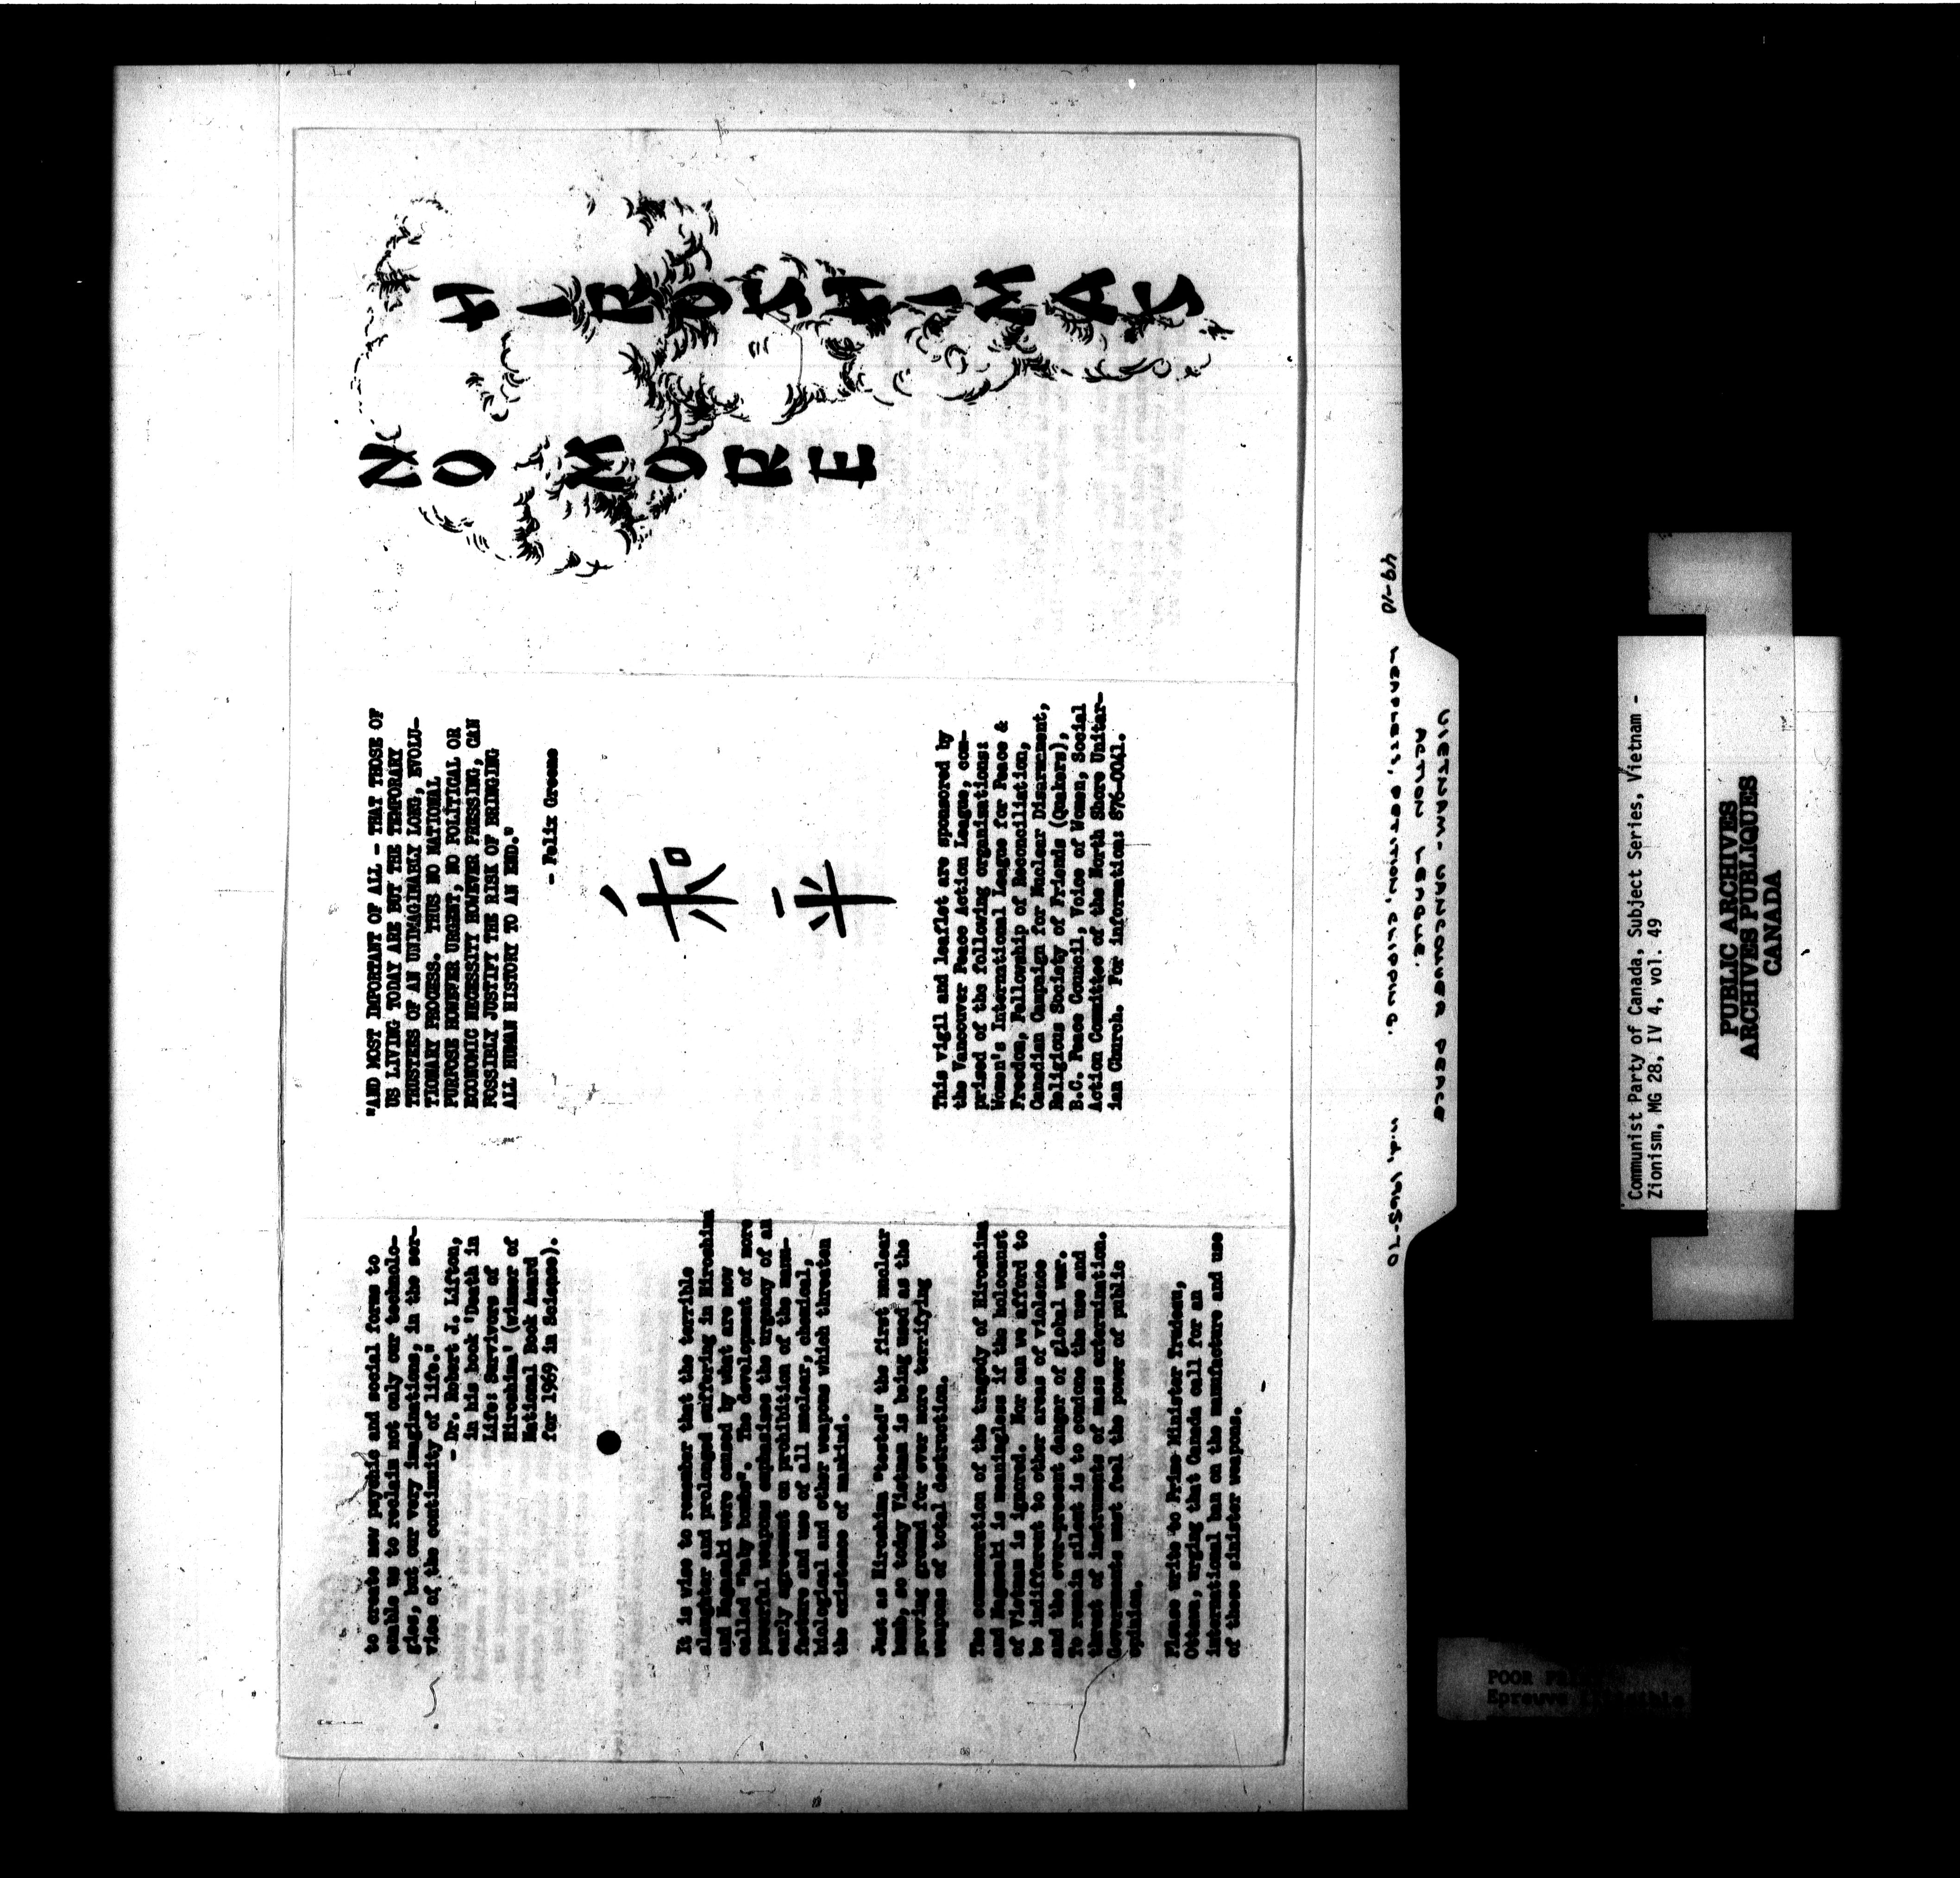 to create new psychic and social forms to
enable us to reclaim not only our technolo-
gies, but our very imaginations, in the ser-
vice of the continuity of life."
- Dr. Robert J. Lifton,
in his book 'Death in
Life: Survivors of
Hiroshima' (winner of
National Book Award
for 1969 in Science).
It is wise to remember that the terrible
slaughter and prolonged suffering in Hiroshima
and Nagasaki were caused by what are now
called "baby bombs". The development of more
powerful weapons emphasizes the urgency of an
early agreement on prohibition of the manu-
facture and use of all nuclear, chemical,
biological and other weapons which threaten
the existence of mankind.
Just as Hiroshima "tested" the first nuclear
bomb, so today Vietnam is being used as the
proving ground for ever more terrifying
weapons of total destruction.
The commemoration of the tragedy of Hiroshima
and Nagasaki is meaningless if the holocaust
of Vietnam is ignored. Nor can we afford to
be indifferent to other areas of violence
and the ever-present danger of global war.
To remain silent is to condone the use and
threat of instruments of mass extermination.
Governments must feel the power of public
opinion.
Please write to Prime Minister Trudeau,
Ottawa, urging that Canada call for an
international ban on the manufacture and use
of these sinister weapons.
"AND MOST IMPORTANT OF ALL - THAT THOSE OF
US LIVING TODAY ARE BUT THE TEMPORARY
TRUSTEES OF AN UNIMAGINABLY LONG, EVOLU-
TIONARY PROCESS. THUS NO NATIONAL
PURPOSE HOWEVER URGENT, NO POLITICAL OR
ECONOMIC NECESSITY HOWEVER PRESSING, CAN
POSSIBLY JUSTIFY THE RISK OF BRINGING
ALL HUMAN HISTORY TO AN END."
- Felix Greene
和
平
This vigil and leaflet are sponsored by
the Vancouver Peace Action League, com-
prised of the following organizations:
Women's International League for Peace &
Freedom, Fellowship of Reconciliation,
Canadian Campaign for Nuclear Disarmament,
Religious Society of Friends (Quakers),
B.C. Peace Council, Voice of Women, Social
Action Committee of the North Shore Unitar-
ian Church. For information: 876-0041.
NO MORE
HIROSHIMAS
VIETNAM - VANCOUVER PEACE
ACTION LEAGUE.
49-10 LEAFLETS, PETITION, CLIPPING. n.d., 1965-70
Communist Party of Canada, Subject Series, Vietnam -
Zionism, MG 28, IV 4, vol. 49
PUBLIC ARCHIVES
ARCHIVES PUBLIQUES
CANADA
POOR
Epreuve illisible